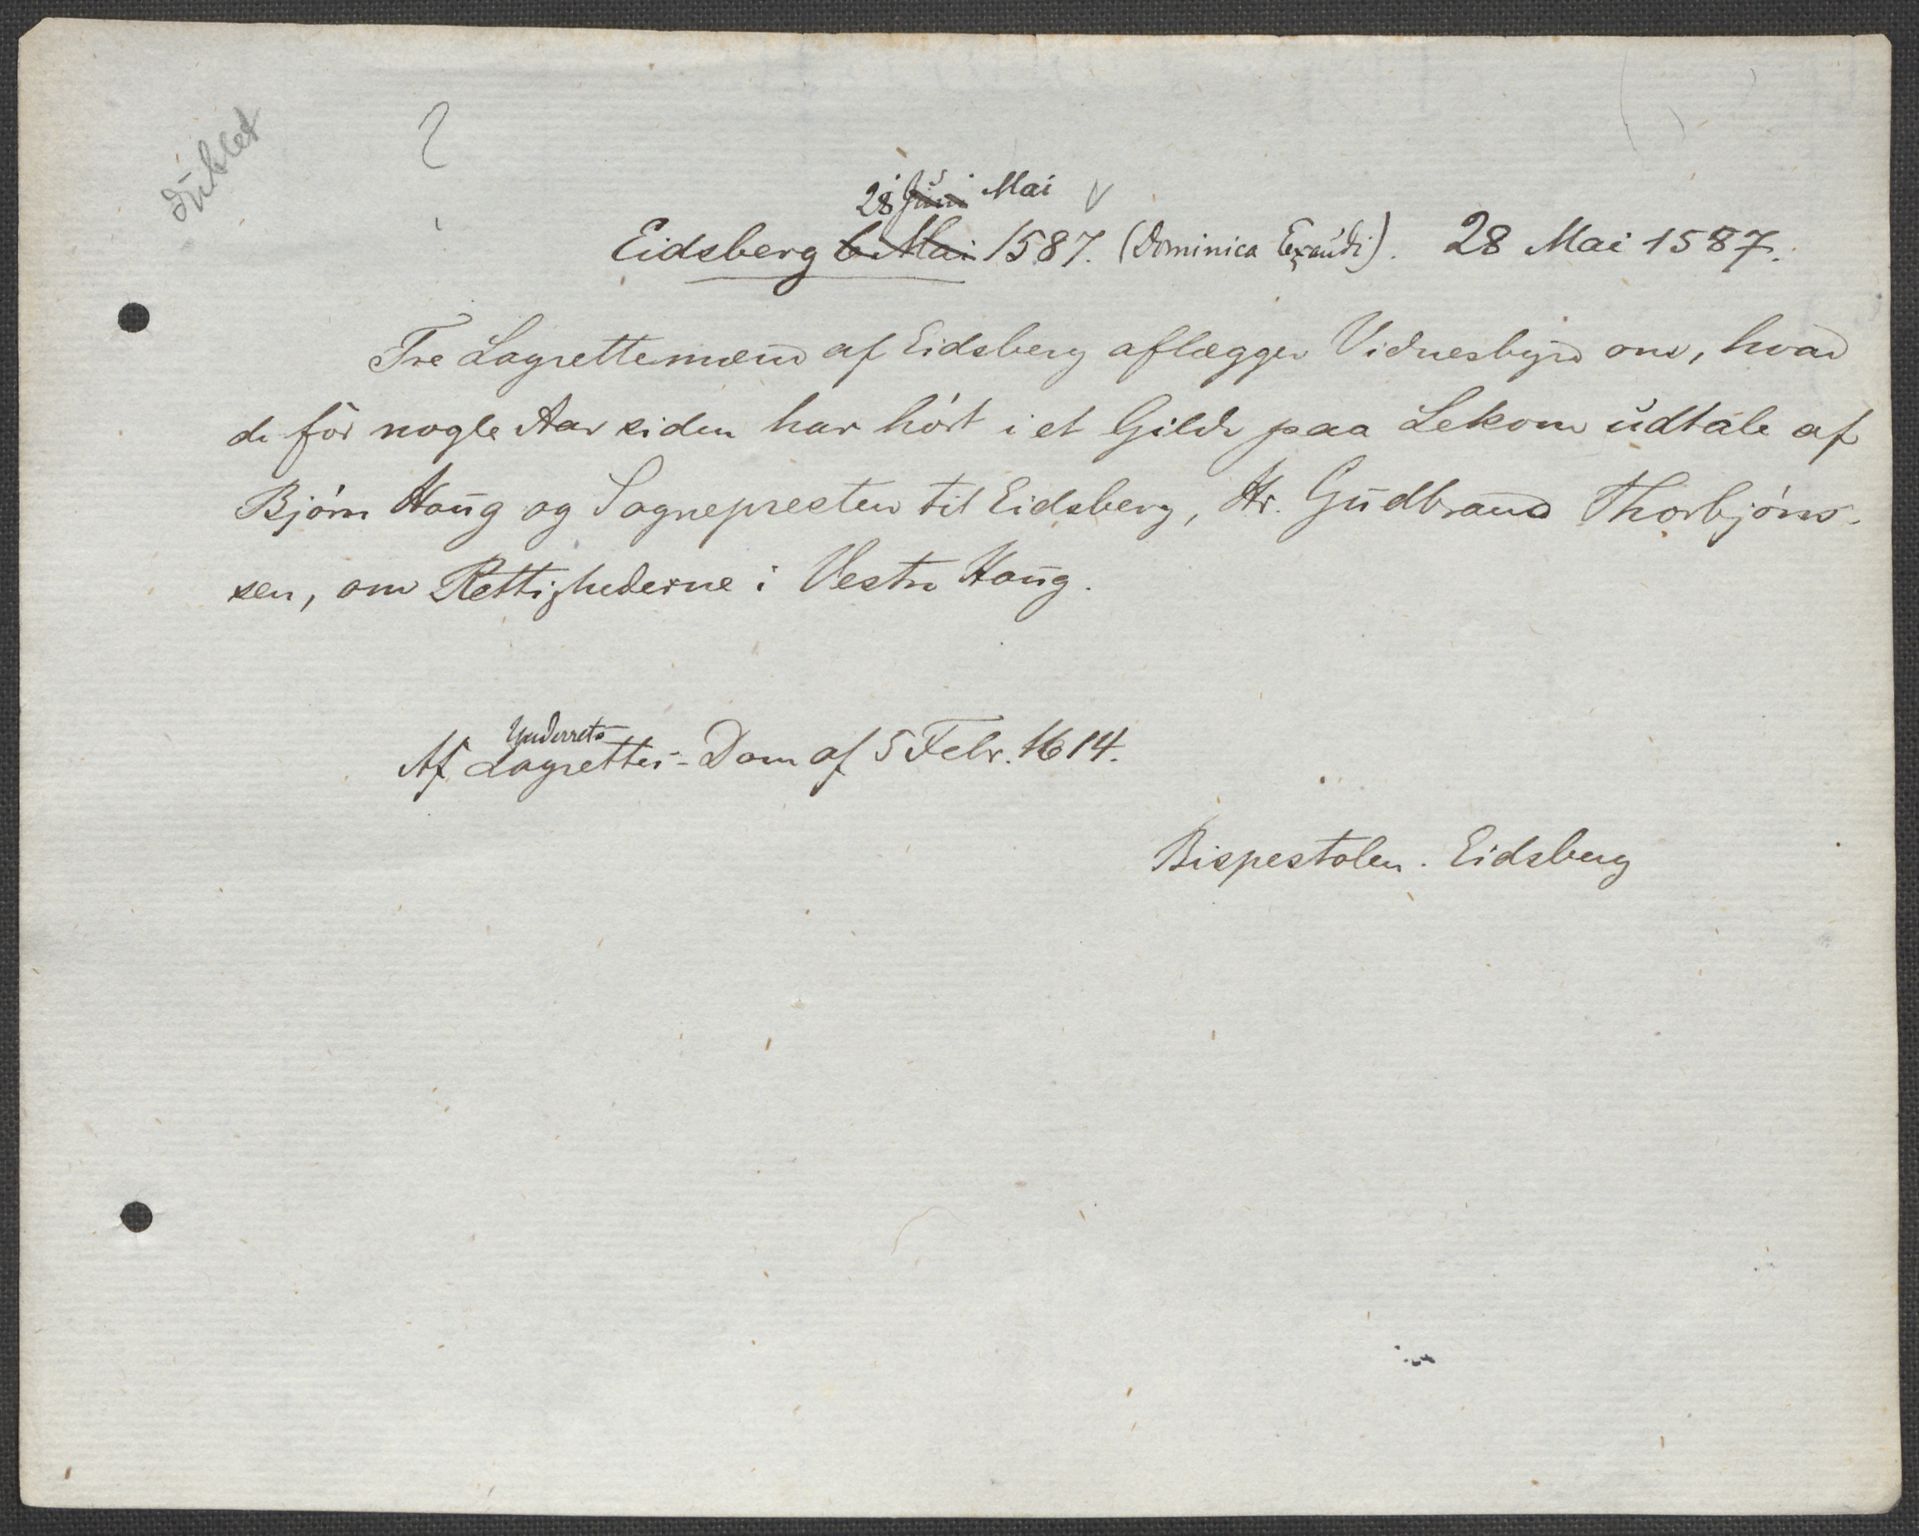 dublet
28 Juni Mai
Eidsberg 6. Mai 1587. (Dominica Exaudi). 28 Mai 1587.
Tre Lagrettemænd af Eidsberg aflægger Vidnesbyrd om, hvad
de for nogle Aar siden har hört i et Gilde paa Lekom udtale af
Bjørn Haug og Sognepresten til Eidsberg, Hr. Gudbrand Thorbjøns-
sen, om Rettighederne i Vestre Haug.
Underrets
Af Lagrettes-Dom af 5 Febr. 1614.
Bispestolen. Eidsberg